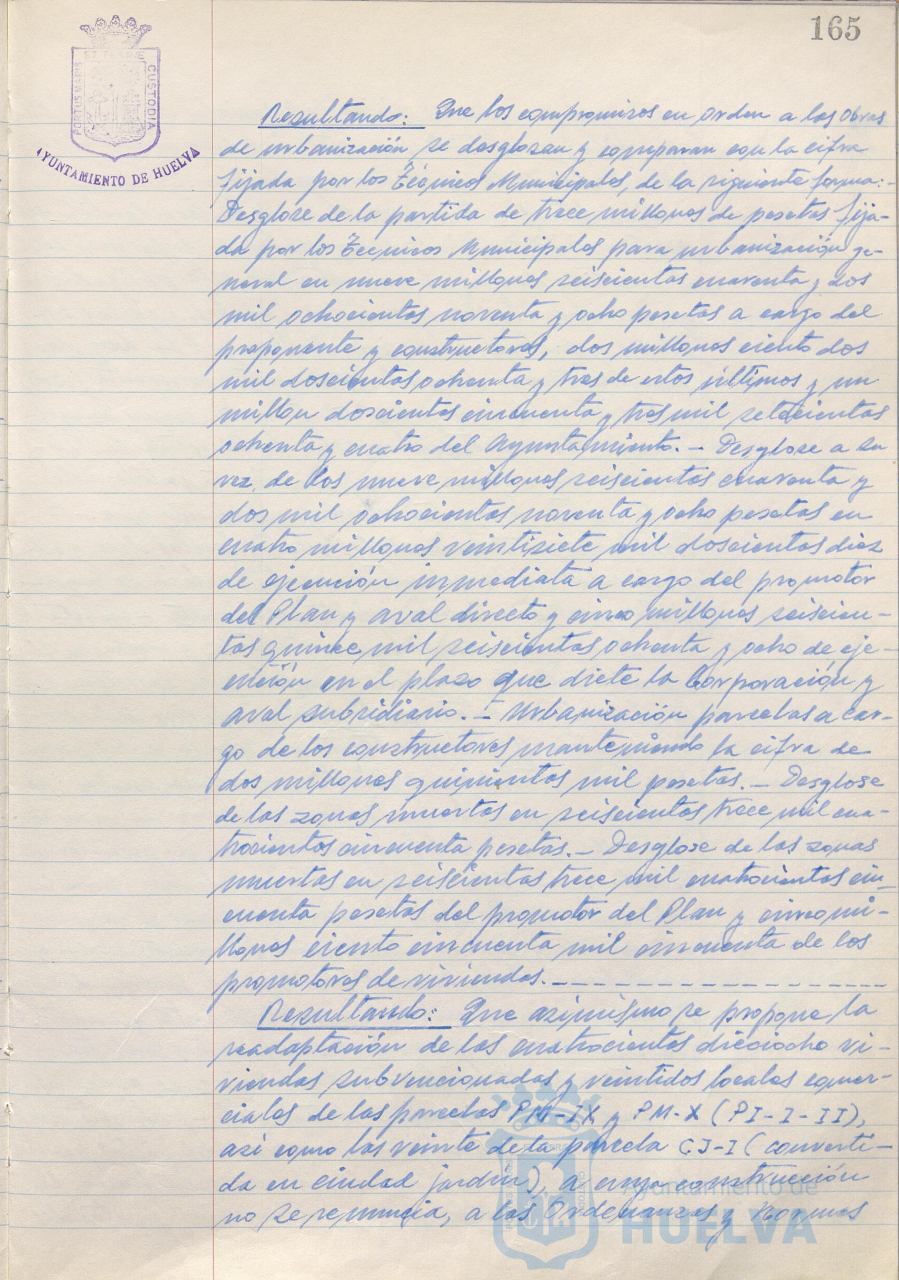 165
PORTUS MARIS
ET TERRE
CUSTODIA
AYUNTAMIENTO DE HUELVA
Resultando: Que los compromisos en orden a las obras
de urbanización se desglosan y comparan con la cifra
fijada por los Técnicos Municipales, de la siguiente forma:-
Desglose de la partida de trece millones de pesetas fija-
da por los Técnicos Municipales para urbanización ge-
neral en nueve millones seiscientas cuarenta y dos
mil ochocientas noventa y ocho pesetas a cargo del
proponente y constructores, dos millones ciento dos
mil doscientas ochenta y tres de estos últimos y un
millon doscientas cincuenta y tres mil setecientas
ochenta y cuatro del Ayuntamiento.- Desglose a su
vez de los nueve millones seiscientas cuarenta y
dos mil ochocientas noventa y ocho pesetas en
cuatro millones veintisiete mil doscientas diez
de ejecución inmediata a cargo del promotor
del Plan y aval directo y cinco millones seiscien-
tas quince mil seiscientas ochenta y ocho de eje-
cución en el plazo que dicte la Corporación y
aval subsidiario.- Urbanización parcelas a car-
go de los constructores manteniendo la cifra de
dos millones quinientas mil pesetas.- Desglose
de las zonas muertas en seiscientas trece mil cua-
trocientas cincuenta pesetas.- Desglose de las zonas
muertas en seiscientas trece mil cuatrocientas cin-
cuenta pesetas del promotor del Plan y cinco mi-
llones ciento cincuenta mil cincuenta de los
promotores de viviendas.
Resultando: Que asimismo se propone la
readaptación de las cuatrocientas dieciocho vi-
viendas subvencionadas y veintidos locales comer-
ciales de las parcelas PM-IX y PM-X (PI-I-II),
así como las veinte de la parcela CJ-I (converti-
da en ciudad jardín), a cuya construcción
no se renuncia, a las Ordenanzas y Normas
Ayuntamiento de
HUELVA